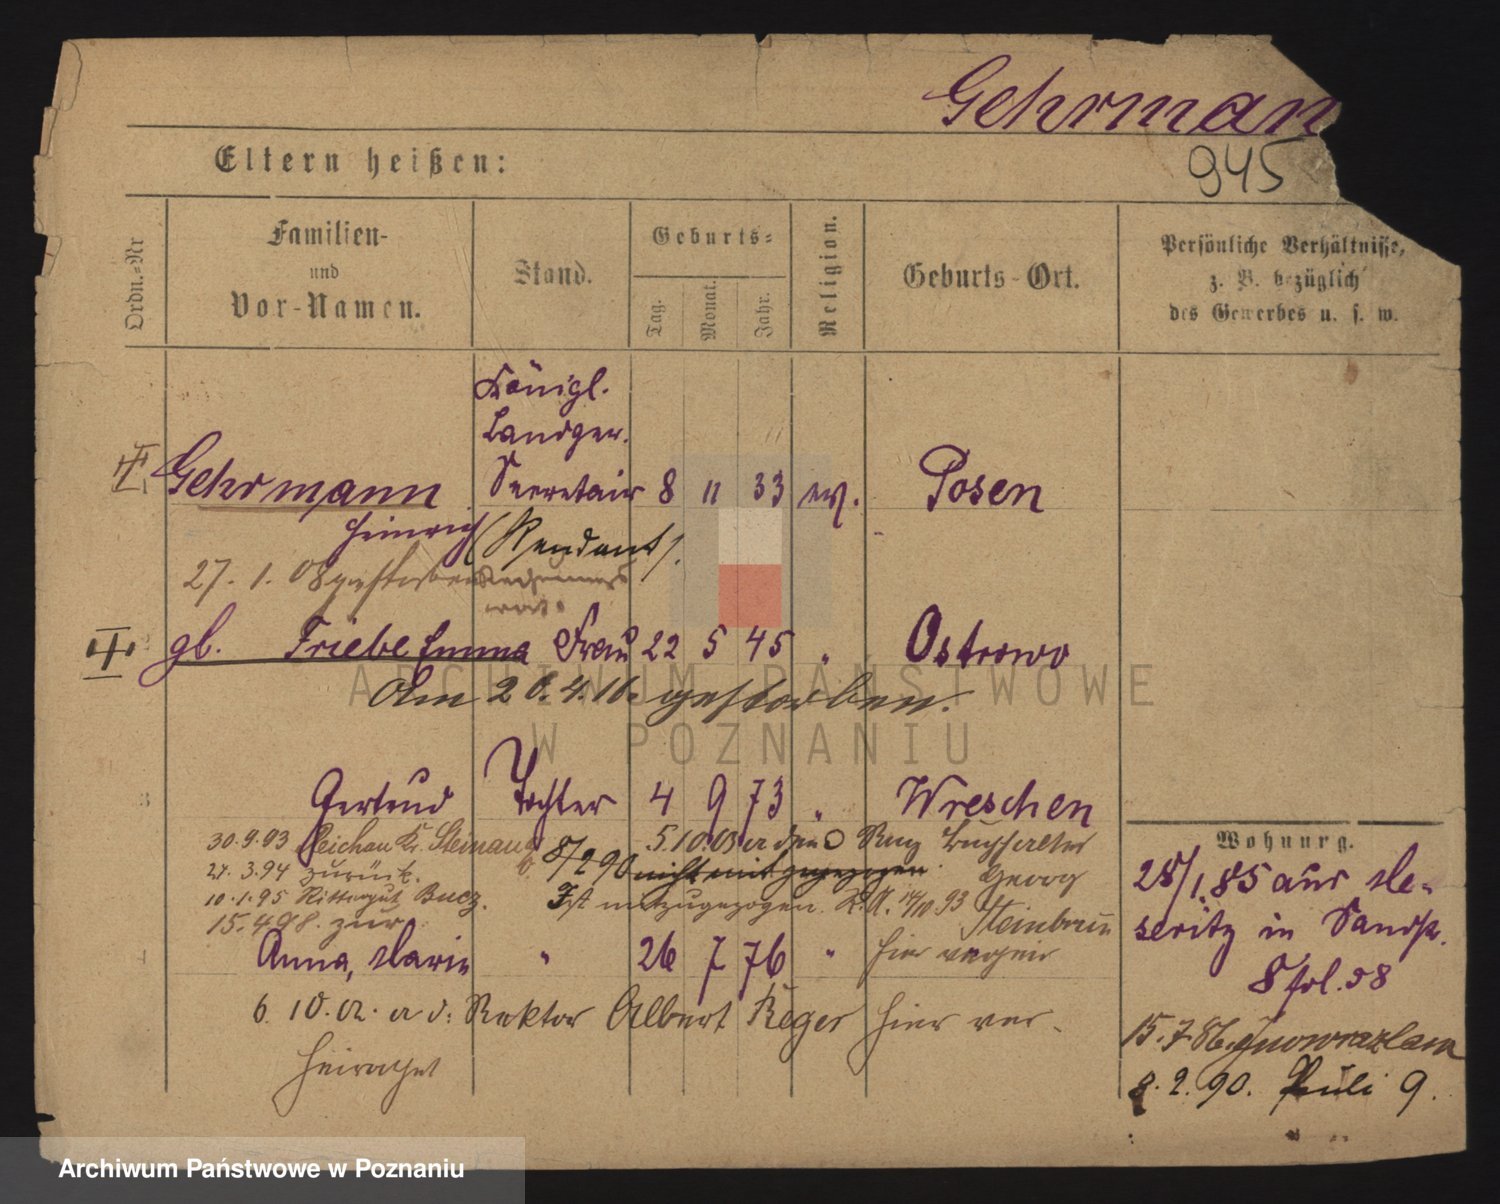 Gehrman
945
Eltern heißen:
Ordn.-Nr
Familien- und Vor-Namen.
Stand.
Geburts-
Tag.
Monat.
Jahr.
Religion.
Geburts-Ort.
Persönliche Verhältnisse,
z. B. bezüglich
des Gewerbes u. s. w.
Königl.
Landger.
Gehrmann Secretair 8 11 33 ev. Posen
Heinrich (Rendant).
27. 1. 08 gestorben
gb. Friebe Emma Frau 22 5 45 " Ostrowo
Am 20.4.16. gestorben.
Gertrud Tochter 4 9 73 " Wreschen
30.9.93 Kr. Steinau
5.10.03 a den Buchhalter
27.3.94 zurück.
8/2 90 nicht mit zugezogen
Georg
10.1.95 Rittergut
Ist mitzugezogen. 14/10.93
Steinbrun
15.4 98. zur
Anna, Marie " 26 7 76 "
hier verheir
6. 10. 02. a d: Rektor Albert Reger hier ver-
heirathet
Wohnung.
28/1.85 aus Me-
seritz in Sandstr.
8 fol. 58
15.7.86. Inowrazlaw
8.2.90. Pauli 9.
ARCHIWUM PAŃSTWOWE
W POZNANIU
Archiwum Państwowe w Poznaniu